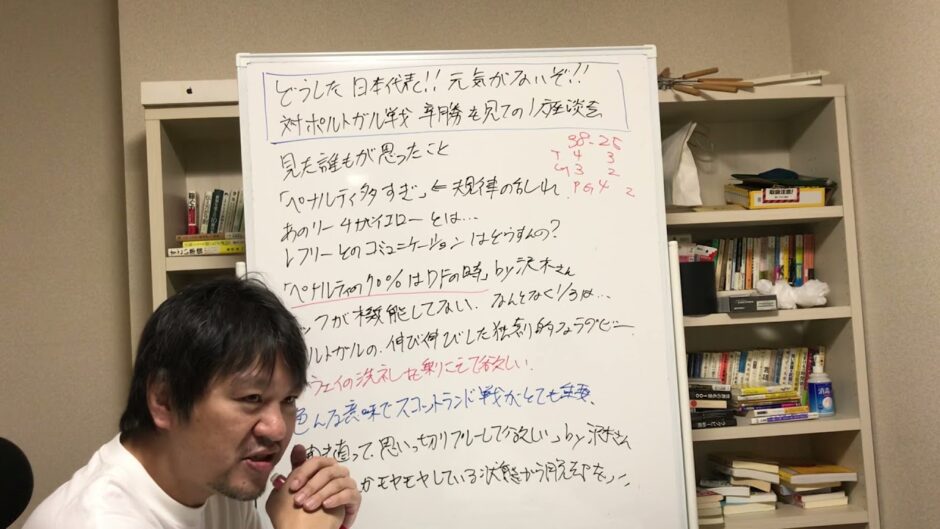 どうした 日本代表!! 元気がないぞ!!
対ポルトガル戦 辛勝を見ての座談会
38-25
T 4 3
G 3 2
PG 4 2
見た誰もが思ったこと
「ペナルティ多すぎ」← 規律の乱れ
あのリーチがイエローとは…
レフリーとのコミュニケーションはどうすんの?
「ペナルティの70%はDFの時」by 沢木さん
ックが機能してない、なんとなく1/3は…
ルトガルの、伸び伸びした独創的なラグビー
ウェイの洗礼も乗りこえて欲しい
色んな意味でスコットランド戦がとても重要、
直って、思いっ切りプレーして欲しい」by 沢木さん
かモヤモヤしている状態から脱却を